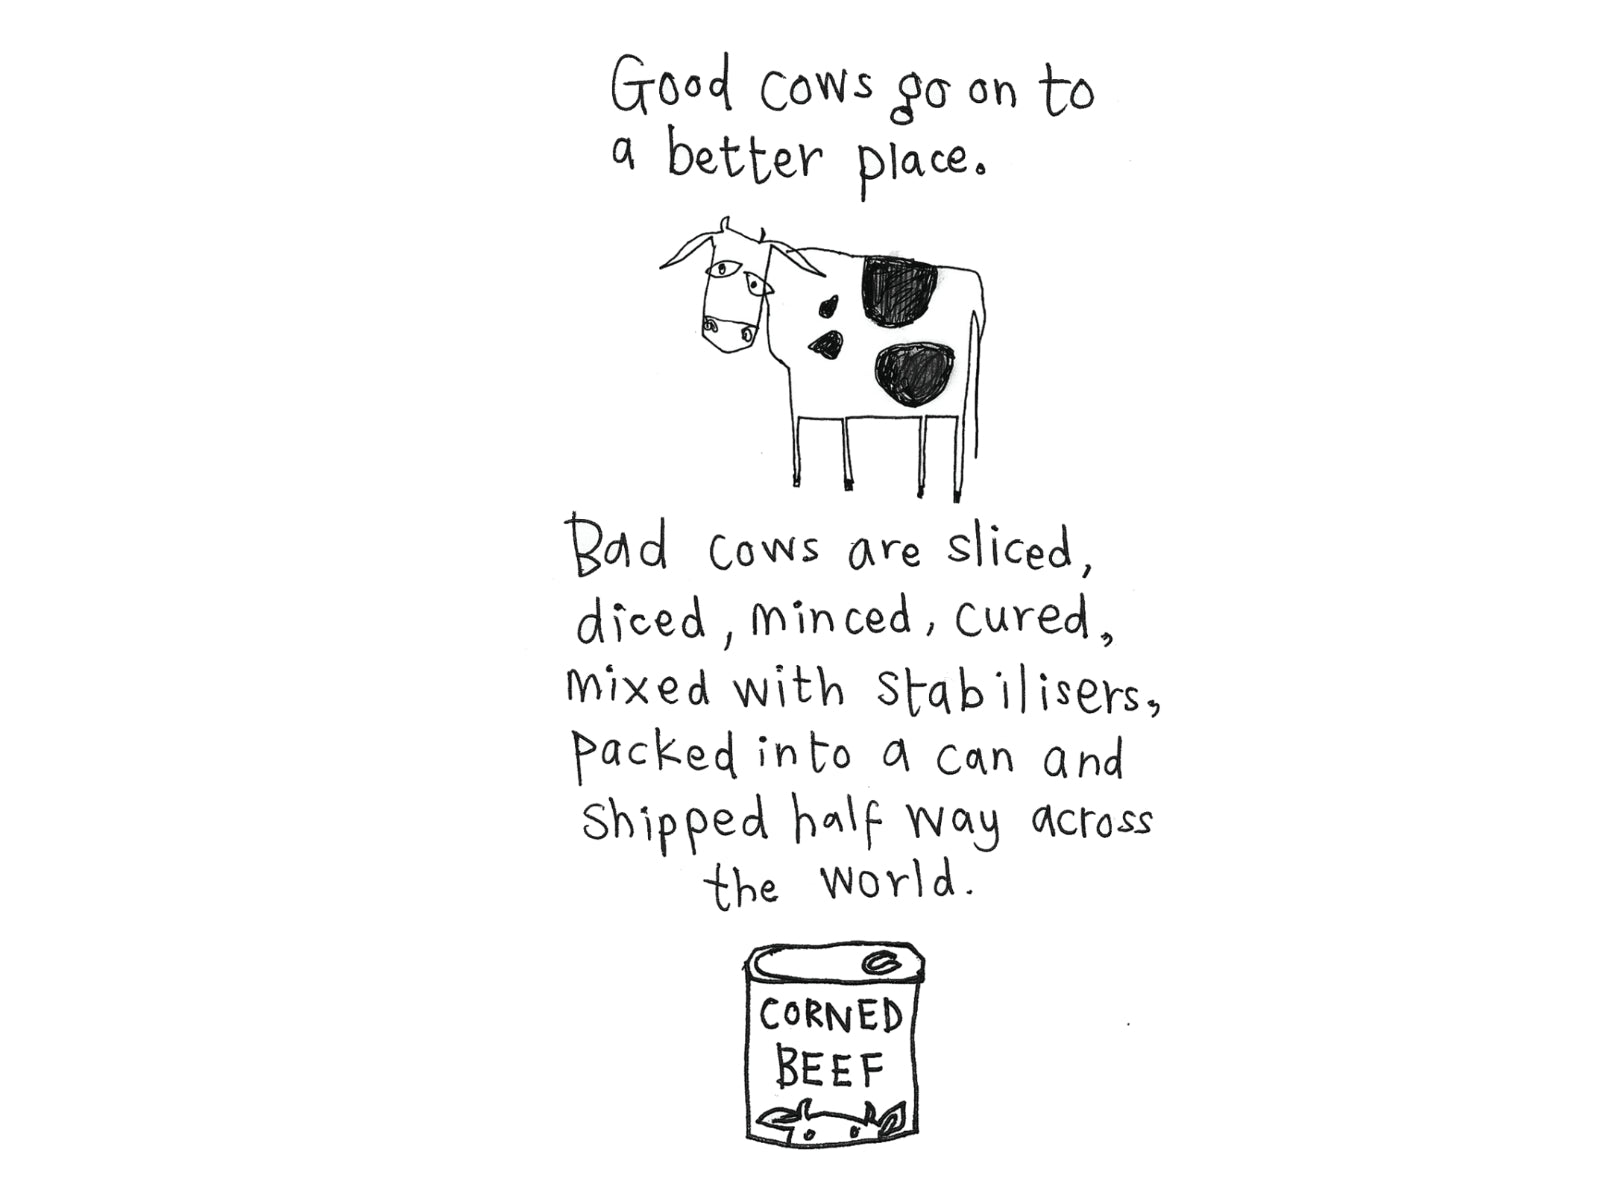 Good cows go on to
a better place.
Bad cows are sliced,
diced, minced, cured,
mixed with stabilisers,
packed into a can and
shipped half way across
the world.
CORNED
BEEF